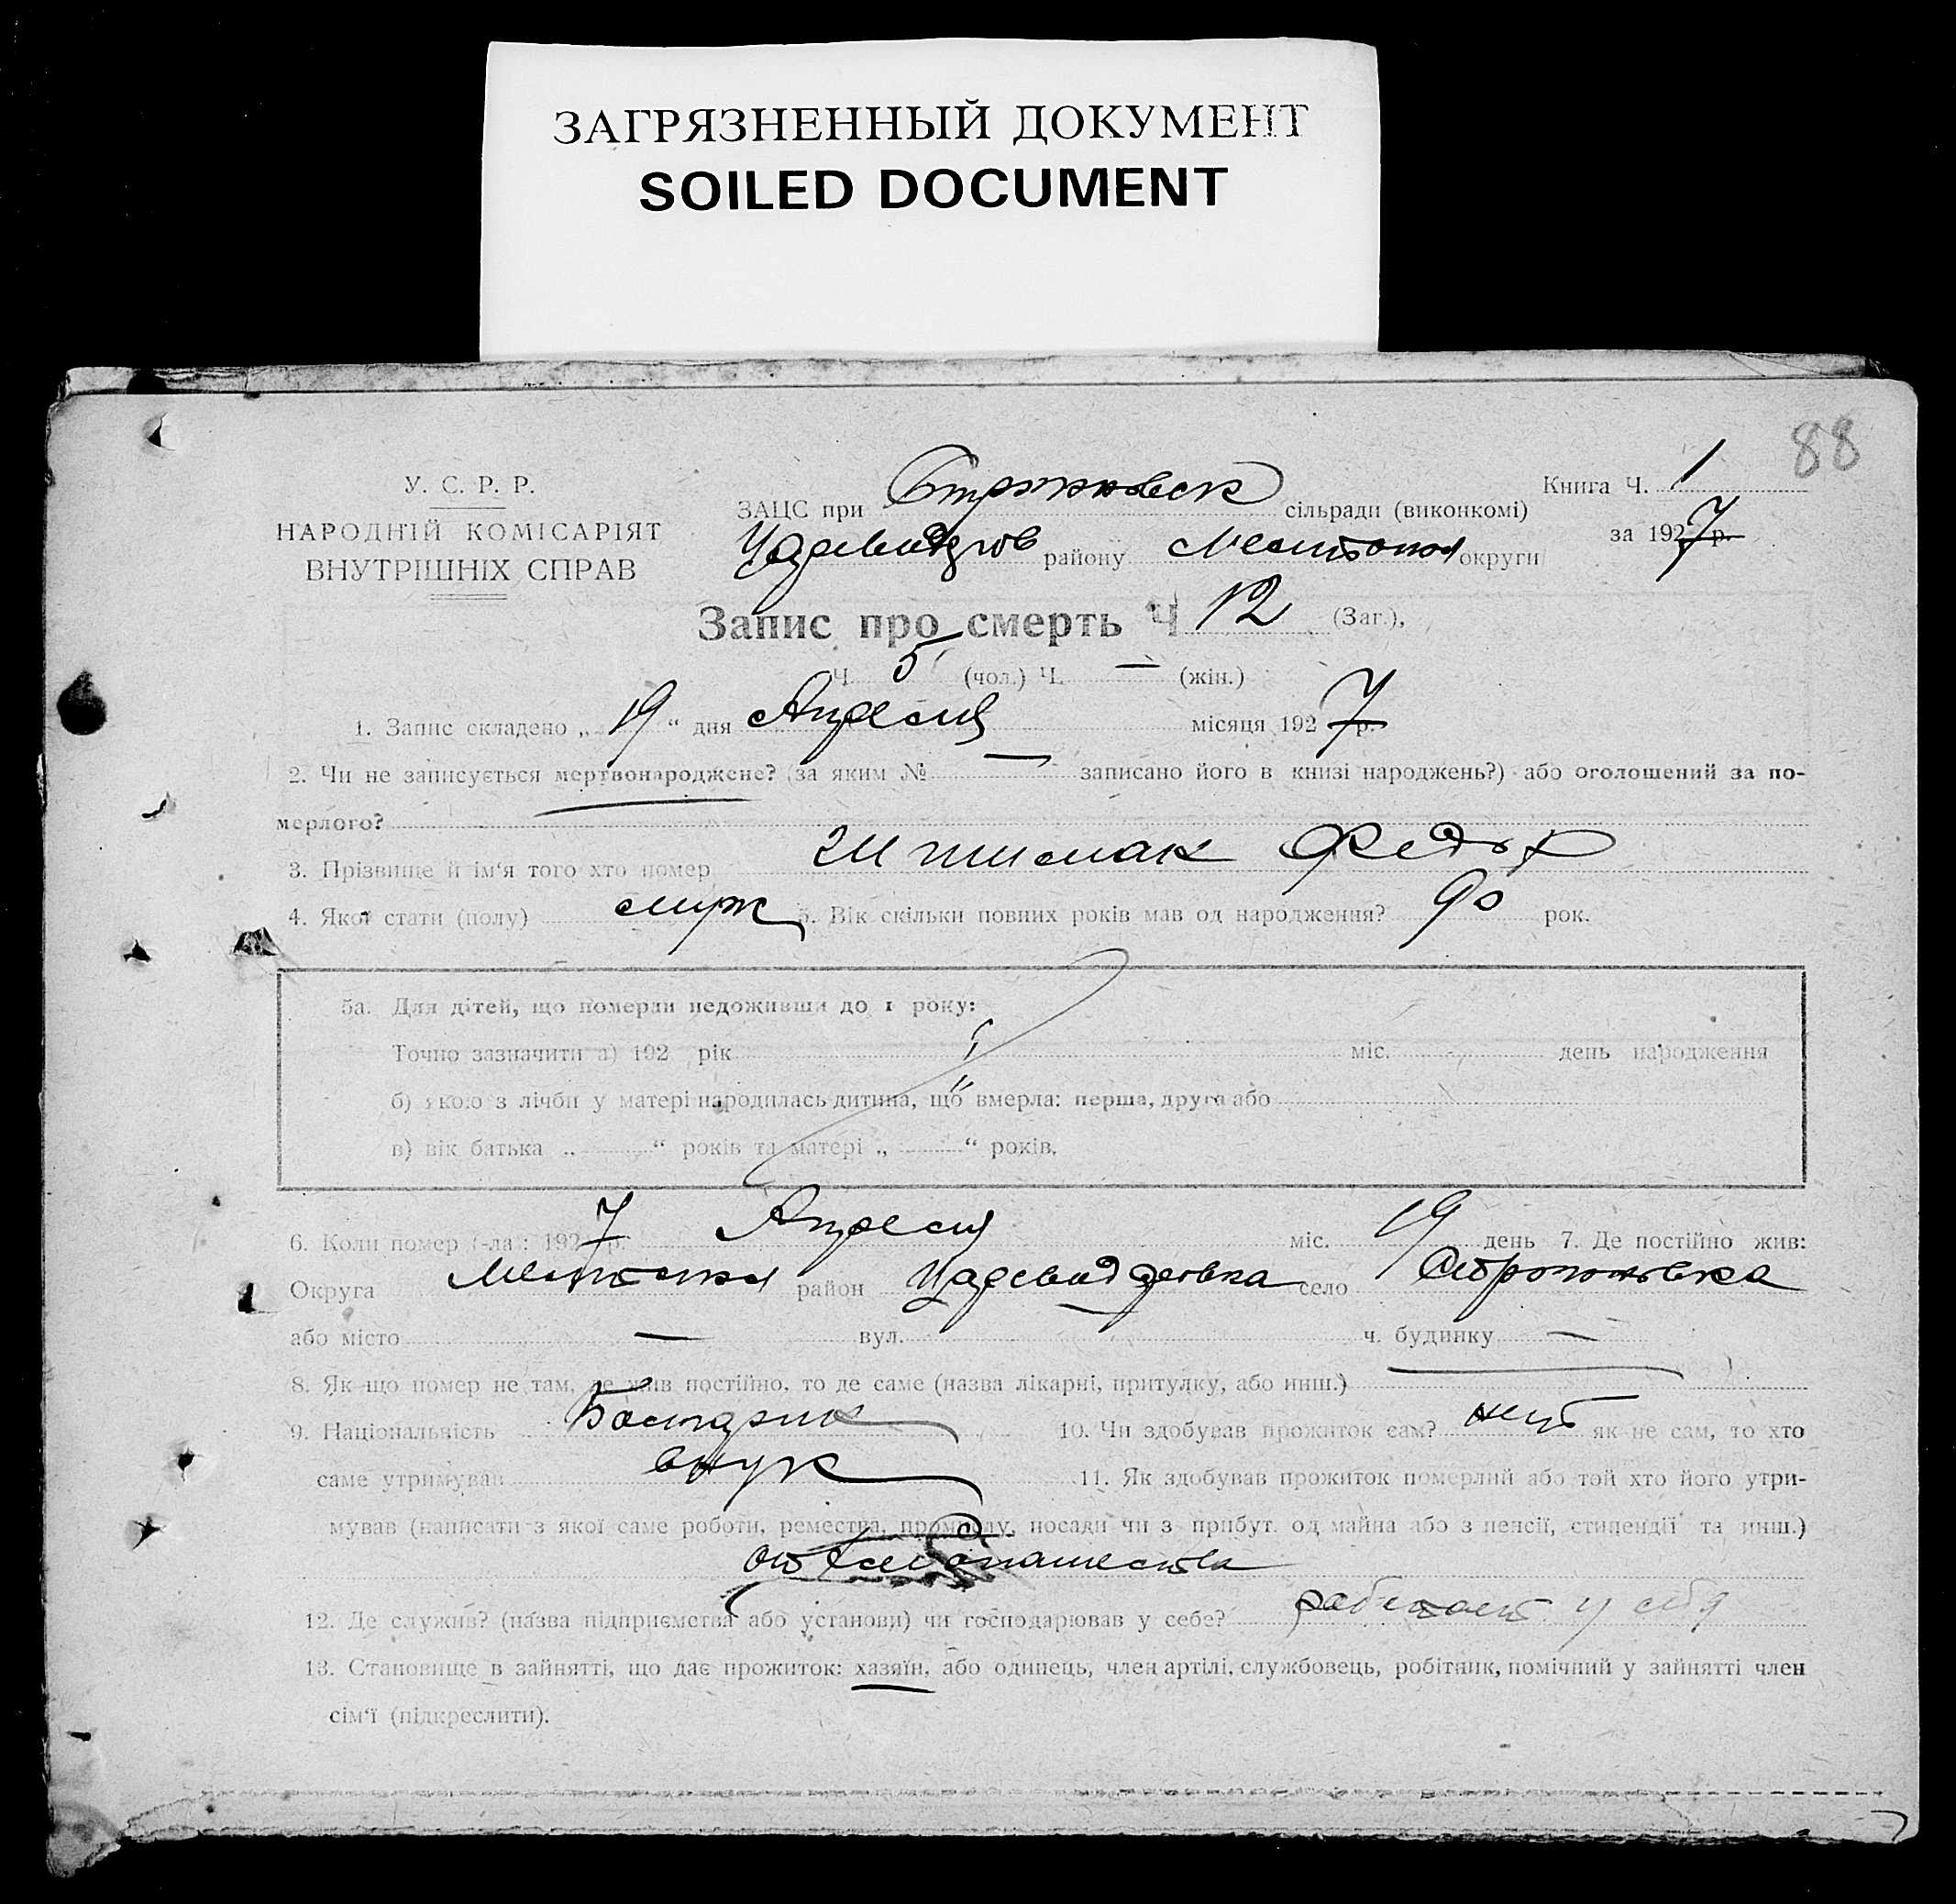 ЗАГРЯЗНЕННЫЙ ДОКУМЕНТ
SOILED DOCUMENT
88
У. С. Р. Р.
НАРОДНІЙ КОМІСАРІЯТ
ВНУТРІШНІХ СПРАВ
ЗАЦС при сільради (виконкомі)
району округи
Книга Ч. 1
за 1927 р.
Запис про смерть Ч 12 (Заг.),
Ч. 5 (чол.) Ч. — (жін.)
1. Запис складено „ 19 “ дня Апреля місяця 1927 р.
2. Чи не записується мертвонароджене? (за яким № — записано його в книзі народжень?) або оголошений за по-
мерлого?
3. Прізвище й ім'я того хто помер Федор
4. Якої стати (полу) муж 5. Вік скільки повних років мав од народження? 90 рок.
5а. Для дітей, що померли недоживши до 1 року:
Точно зазначити а) 192 рік міс. день народження
б) якою з лічби у матері народилась дитина, що вмерла: перша, друга або
в) вік батька „ “ років та матері „ “ років.
6. Коли помер (-ла): 1927 р. Апреля міс. 19 день 7. Де постійно жив:
Округа район село
або місто — вул. ч. будинку —
8. Як що помер не там, де жив постійно, то де саме (назва лікарні, притулку, або инш.)
9. Національність 10. Чи здобував прожиток сам? нет як не сам, то хто
саме утримував внук 11. Як здобував прожиток померлий або той хто його утри-
мував (написати з якої саме роботи, ремества, промислу, посади чи з прибут. од майна або з пенсії, стипендії та инш.)
от
12. Де служив? (назва підприємства або установи) чи господарював у себе? работает у себя
13. Становище в зайнятті, що дає прожиток: хазяїн, або одинець, член артілі, службовець, робітник, помічний у зайнятті член
сім'ї (підкреслити).